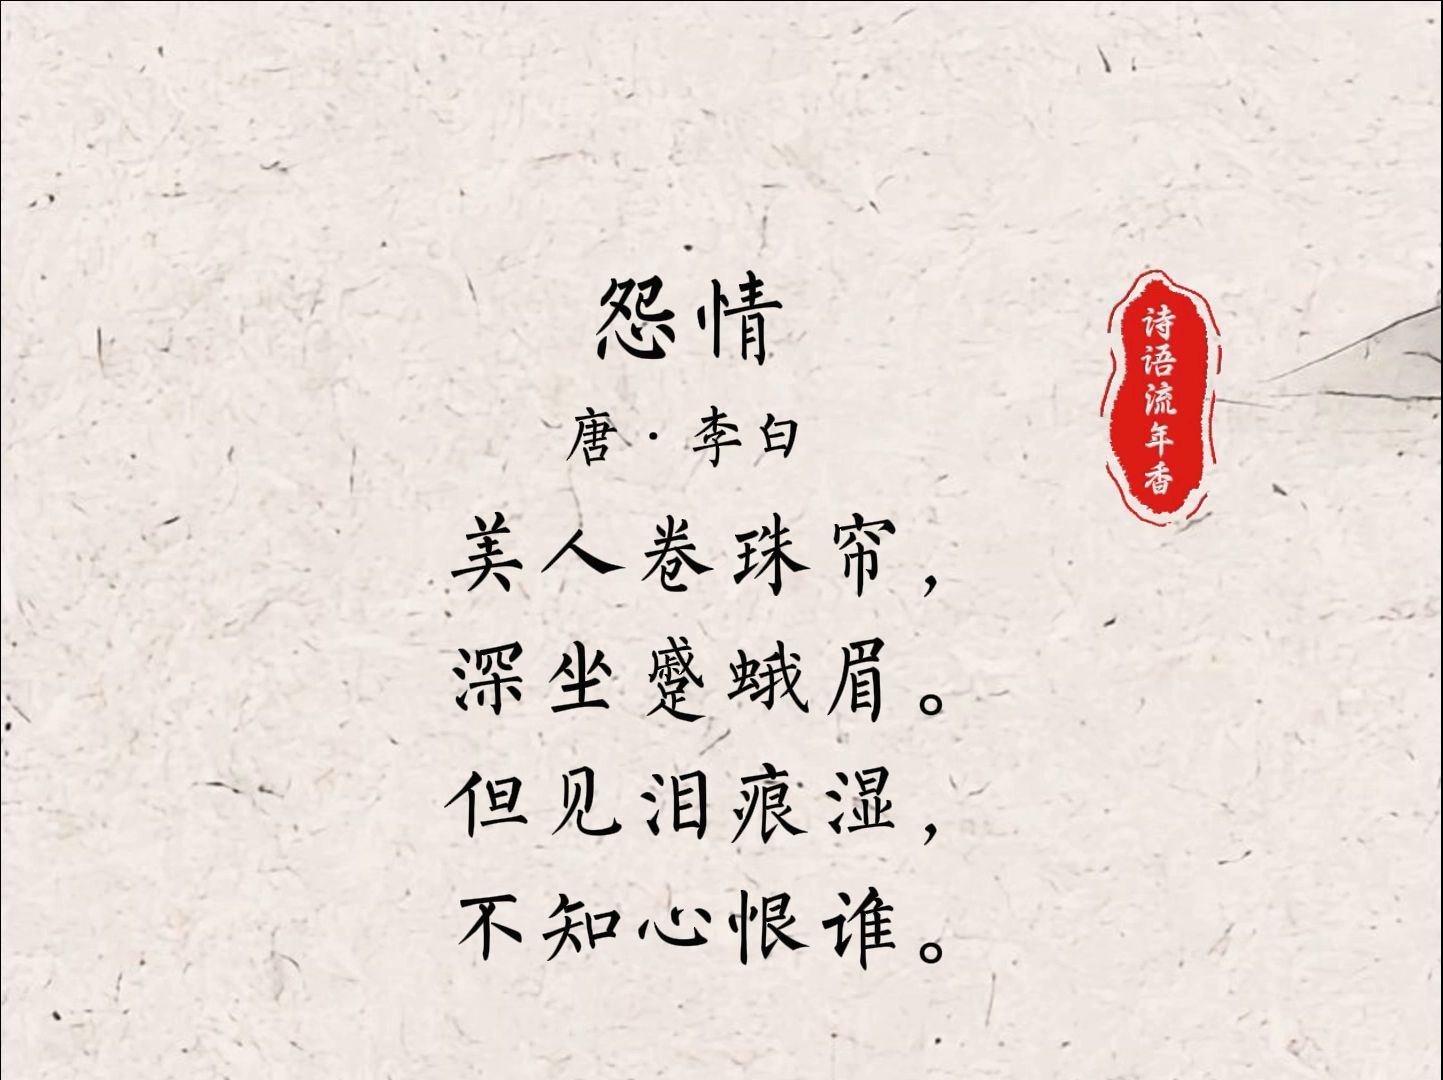 怨情
唐·李白
美人卷珠帘，
深坐蹙蛾眉。
但见泪痕湿，
不知心恨谁。
诗语流年香